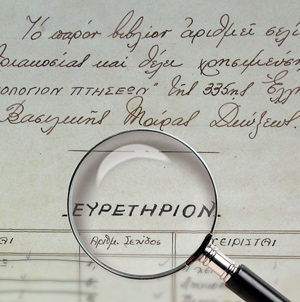 Τὸ παρὸν βιβλίον ἀριθμεῖ σελί
ριακοσίας καὶ δέκα χρησιμεύση
ΟΛΟΓΙΟΝ ΠΤΗΣΕΩΝ" τῆς 335ης Ἑλλη
Βασιλικῆς Μοίρας Διώξεως.
ΕΥΡΕΤΗΡΙΟΝ
ΑΙ Ἀριθμ. Σελίδος ΧΕΙΡΙΣΤΑΙ